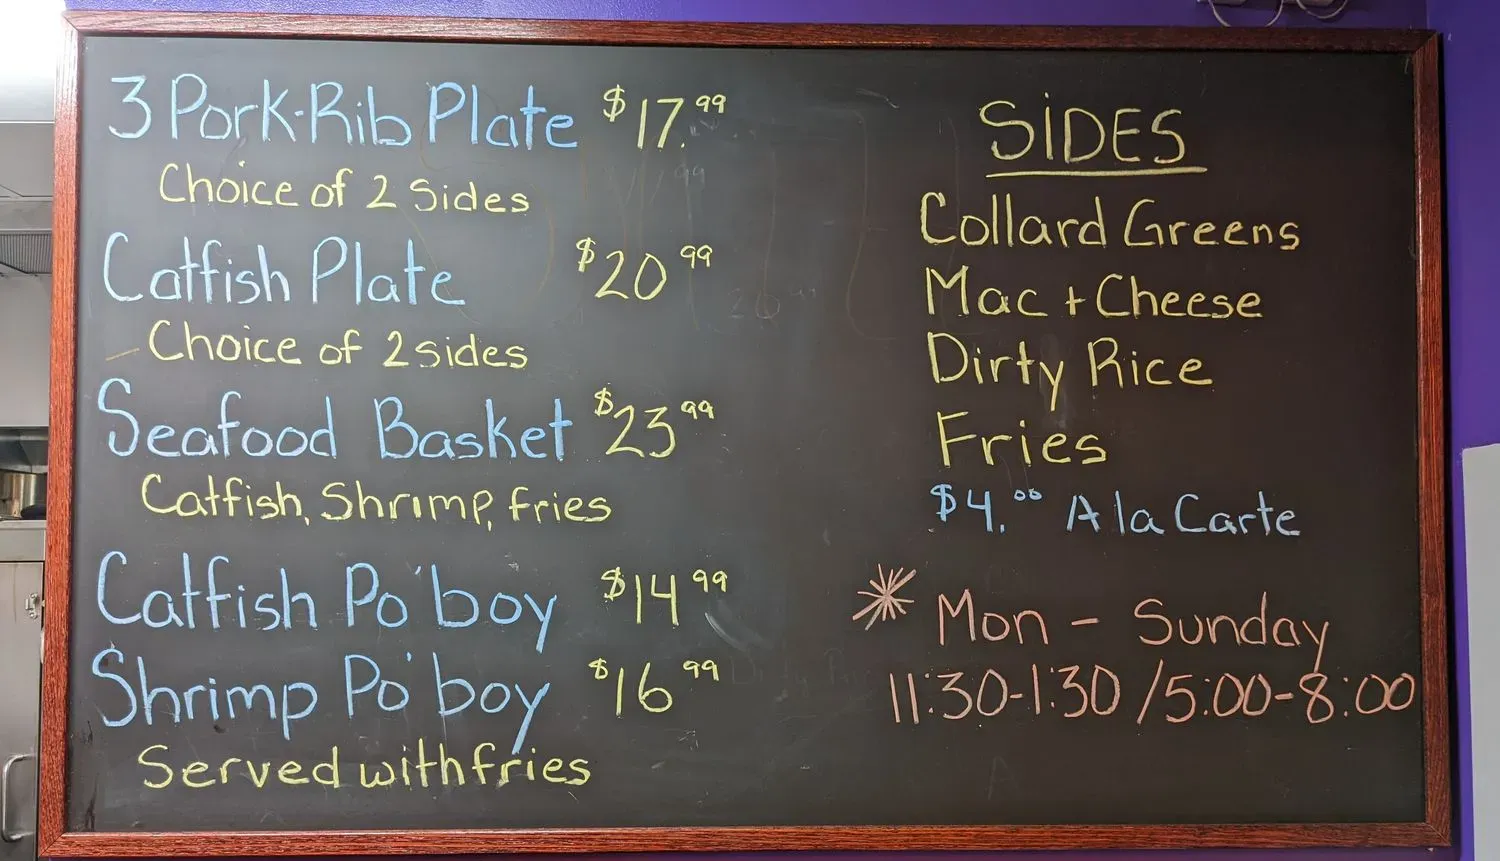 3 Pork-Rib Plate $17.99
Choice of 2 Sides
Catfish Plate $20.99
- Choice of 2 sides
Seafood Basket $23.99
Catfish, Shrimp, fries
Catfish Po'boy $14.99
Shrimp Po'boy $16.99
Served with fries
SiDES
Collard Greens
Mac + Cheese
Dirty Rice
Fries
$4.00 A la Carte
* Mon - Sunday
11:30-1:30 / 5:00-8:00